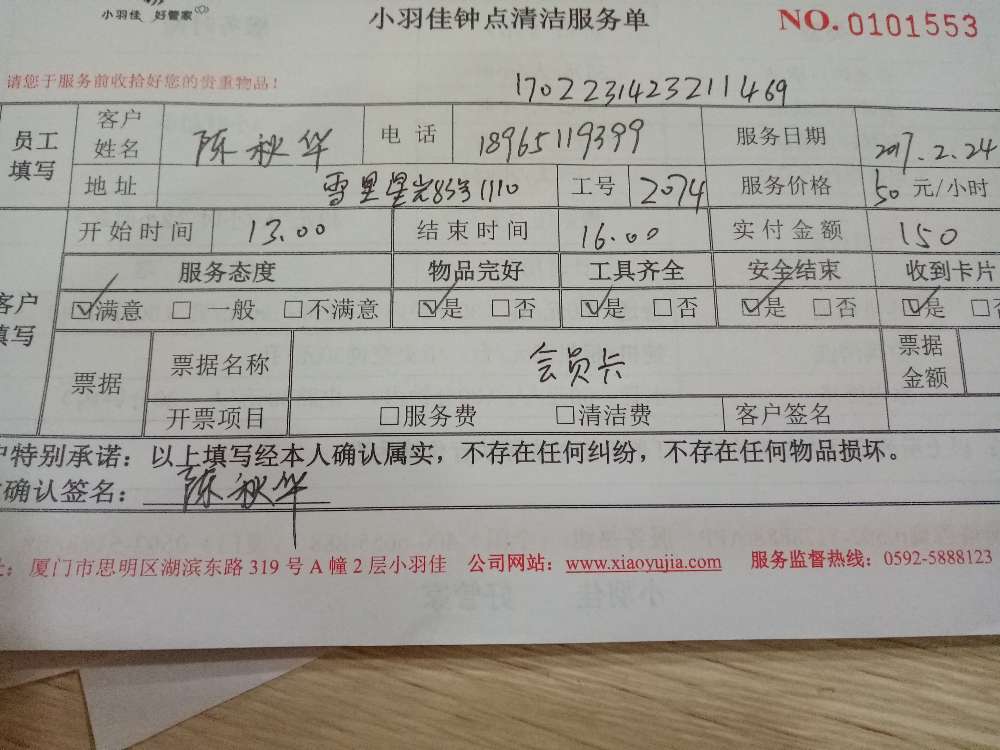 小羽佳 好管家
小羽佳钟点清洁服务单
NO. 0101553
请您于服务前收拾好您的贵重物品!
1702231423211469
员工填写 客户姓名 陈秋华 电话 18965119399 服务日期 2017.2.24
地址 雪里星光85号1110 工号 2074 服务价格 50 元/小时
开始时间 13.00 结束时间 16.00 实付金额 150
服务态度 物品完好 工具齐全 安全结束 收到卡片
客户填写 ☑满意 □ 一般 □不满意 ☑是 □否 ☑是 □否 ☑是 □否 ☑是 □否
票据 票据名称 会员卡 票据金额
开票项目 □服务费 □清洁费 客户签名
户特别承诺:以上填写经本人确认属实,不存在任何纠纷,不存在任何物品损坏。
确认签名: 陈秋华
厦门市思明区湖滨东路 319 号 A 幢 2 层小羽佳 公司网站: www.xiaoyujia.com 服务监督热线: 0592-5888123